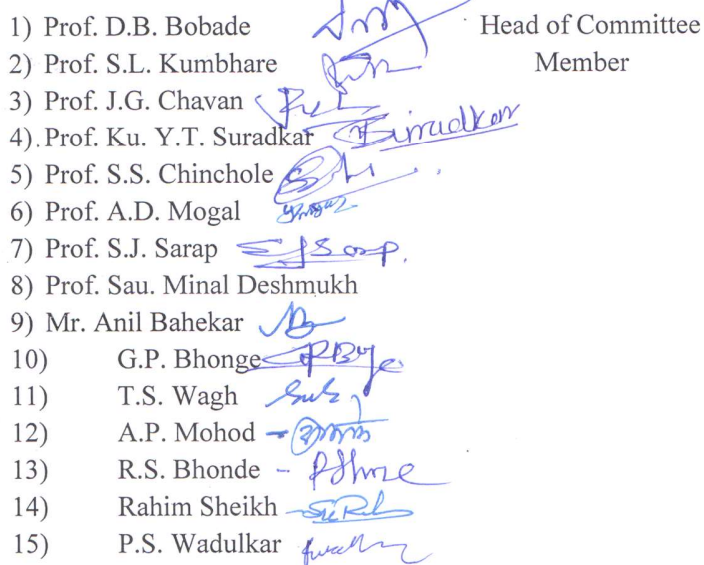 1) Prof. D.B. Bobade Head of Committee
2) Prof. S.L. Kumbhare Member
3) Prof. J.G. Chavan
4). Prof. Ku. Y.T. Suradkar
5) Prof. S.S. Chinchole
6) Prof. A.D. Mogal
7) Prof. S.J. Sarap
8) Prof. Sau. Minal Deshmukh
9) Mr. Anil Bahekar
10) G.P. Bhonge
11) T.S. Wagh
12) A.P. Mohod
13) R.S. Bhonde
14) Rahim Sheikh
15) P.S. Wadulkar